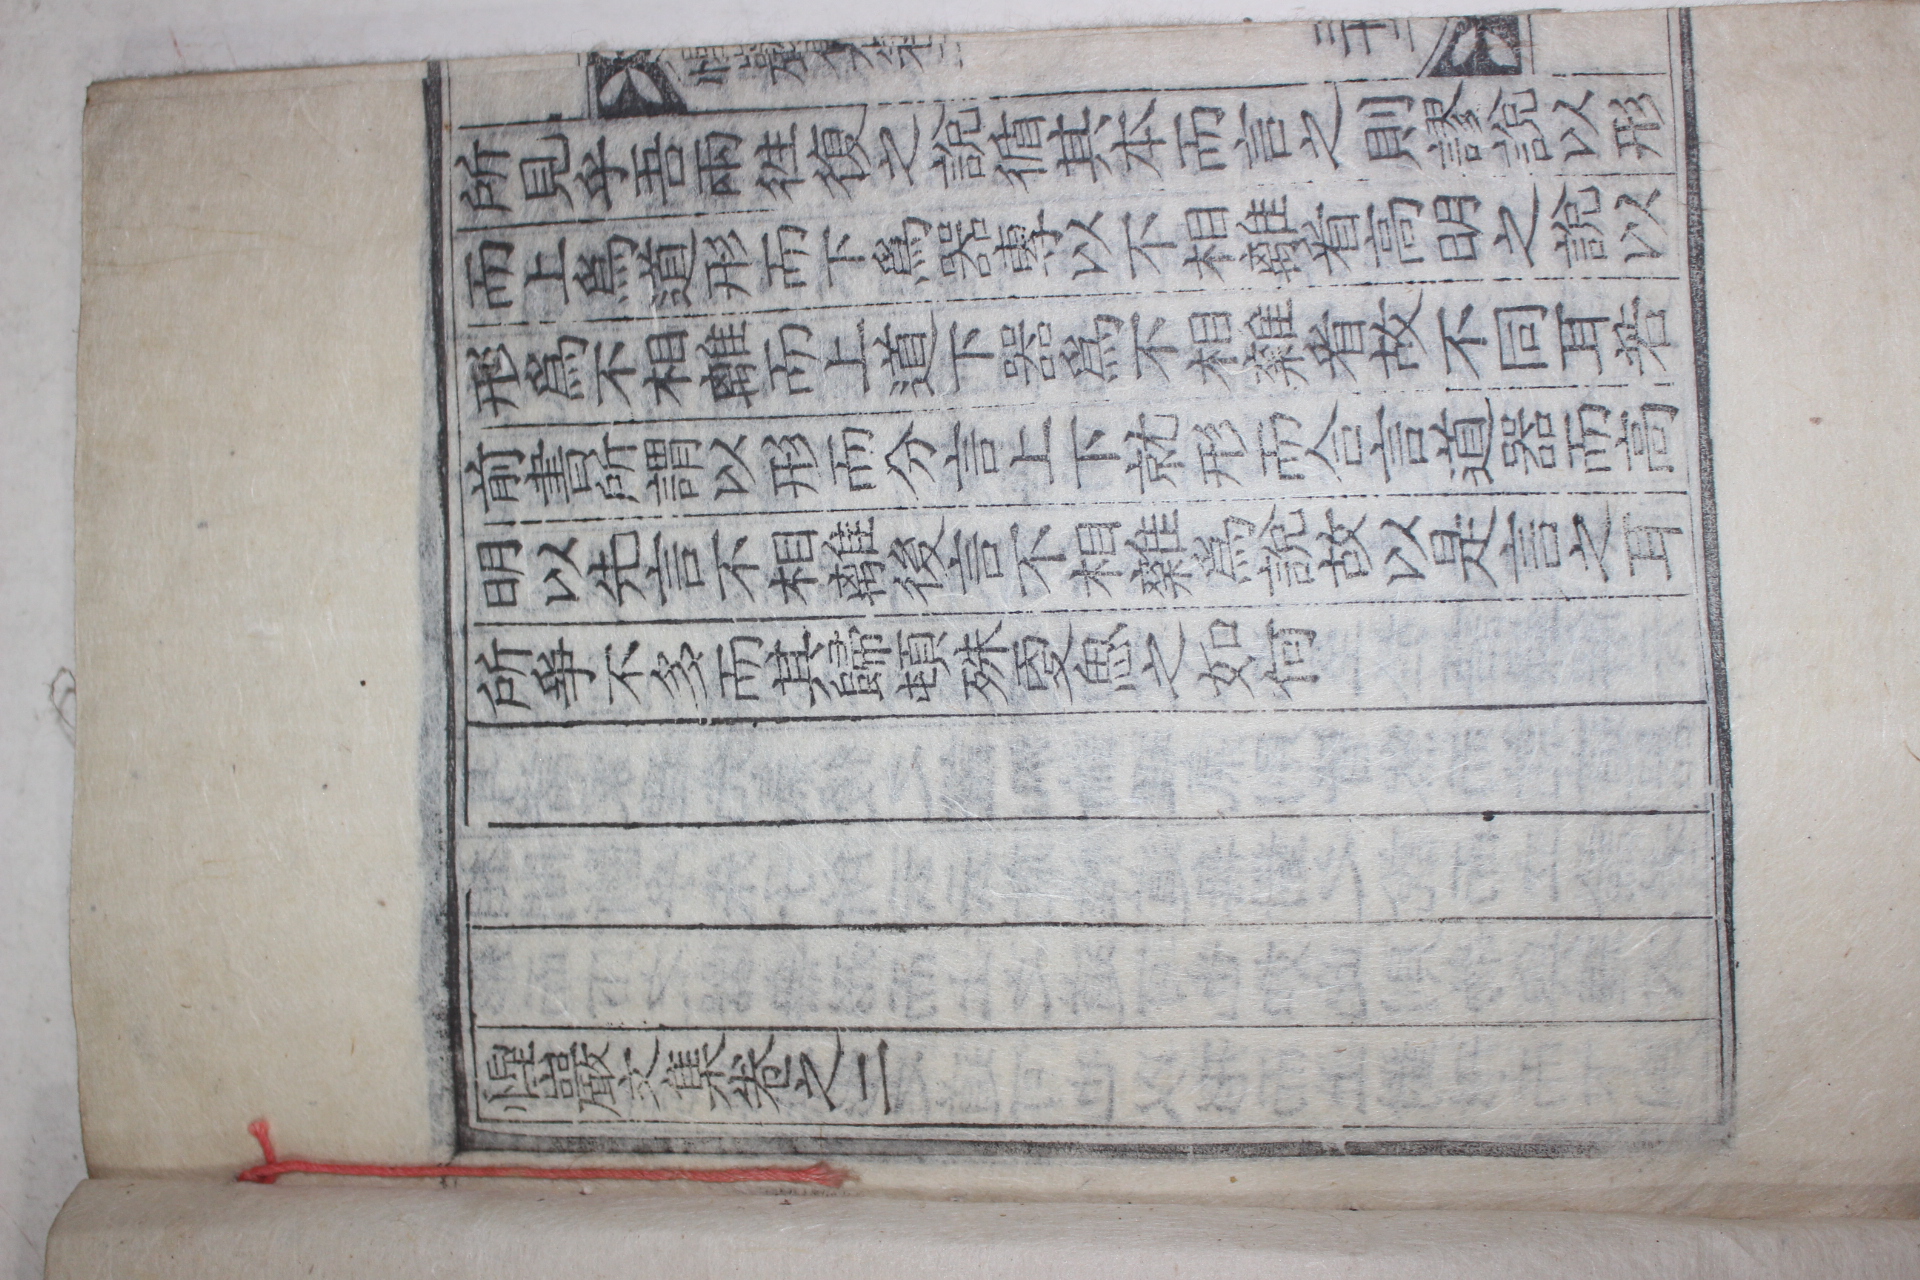 所見乎吾兩徃復之說循其本而言之則謬說以形
而上爲道形而下爲器專以不相離看高明之說以
形爲不相離而上道下器爲不相雜看故不同耳若
前書所謂以形而分言上下就形而合言道器而高
明以先言不相離後言不相雜爲說故以是言之耳
所爭不多而其歸頓殊更思之如何
惺巖文集卷之二
三十二